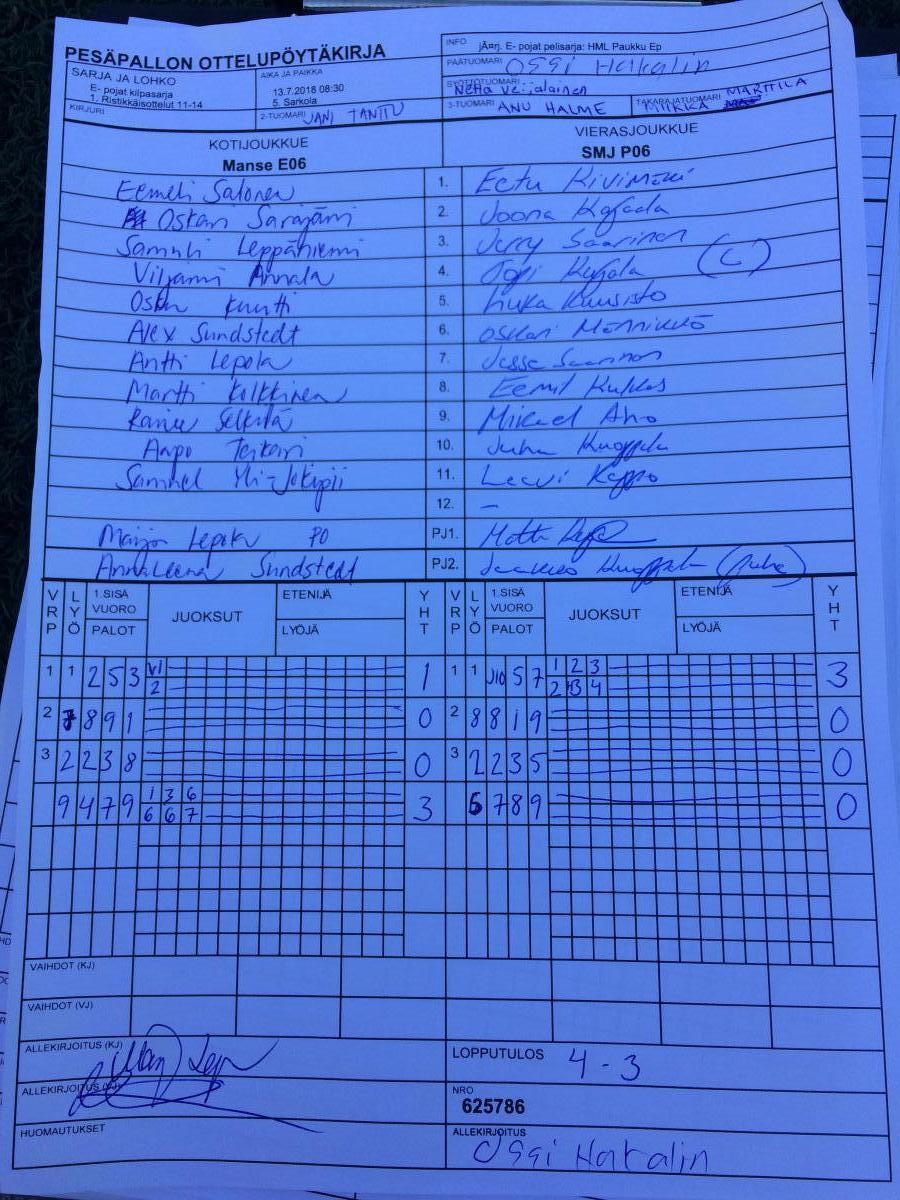 PESÄPALLON OTTELUPÖYTÄKIRJA
INFO jÄ¤rj. E- pojat pelisarja: HML Paukku Ep
SARJA JA LOHKO
E- pojat kilpasarja
1. Ristikkäisottelut 11-14
AIKA JA PAIKKA
13.7.2018 08:30
5. Sarkola
PÄÄTUOMARI Ossi Hakalin
SYÖTTÖTUOMARI Netta Veijalainen
KIRJURI
2-TUOMARI JANI TANTTU
3-TUOMARI ANU HALME
TAKARAJATUOMARI MIIKKA MARTTILA
KOTIJOUKKUE
Manse E06
VIERASJOUKKUE
SMJ P06
Eemeli Salonen 1. Eetu Kivimäki
Oskari Sarajärvi 2. Joona
Samuli Leppäniemi 3. Jerry Saarinen
Viljami Annala 4. (C)
Kuutti 5. Luka Kuusisto
Alex Sundstedt 6. Oskari Männikkö
Antti Lepola 7. Jesse Saarinen
Martti Kolkkinen 8. Eemil Kukkas
9. Mikael Aho
Aapo 10. Juha Kuoppala
Samuel Yli-Jokipii 11. Leevi Keppo
12. –
Marjo Lepola PO PJ1. Matti
AnnaLeena Sundstedt PJ2. Jaakko Kuoppala (Juha)
VRP LYÖ 1.SISÄ VUORO PALOT JUOKSUT ETENIJÄ LYÖJÄ YHT VRP LYÖ 1.SISÄ VUORO PALOT JUOKSUT ETENIJÄ LYÖJÄ YHT
1 1 2 5 3 VI 1 1 1 J10 5 7 1 2 3 3
2 2 3 4
2 7 8 9 1 0 2 8 8 1 9 0
3 2 2 3 8 0 3 2 2 3 5 0
9 4 7 9 1 3 6 3 6 7 8 9 0
6 6 7
VAIHDOT (KJ)
VAIHDOT (VJ)
ALLEKIRJOITUS (KJ)
LOPPUTULOS 4 - 3
ALLEKIRJOITUS (VJ)
NRO
625786
HUOMAUTUKSET
ALLEKIRJOITUS
Ossi Hakalin